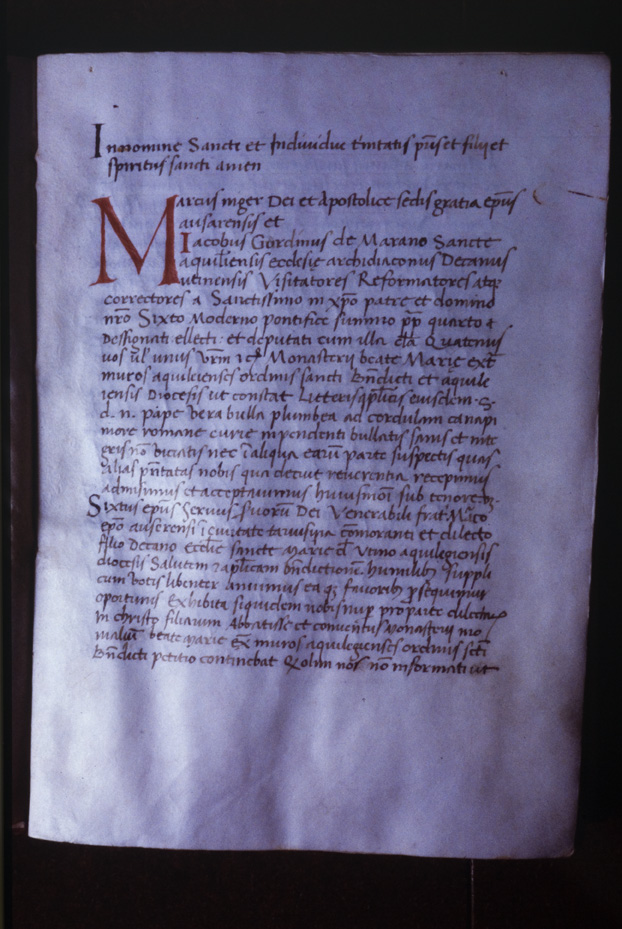 In nomine Sancte et Individue trinitatis pr̄is et filij et
spiritus sancti amen
Marcus niger Dei et Apostolice sedis gratia ep̄us
ausarensis et
Iacobus Gordinus de Marano Sancte
aquileiensis ecclesie archidiaconus Decanus
utinensis Visitatores Reformatores atq
correctores a Sanctissimo in xp̄o patre et domino
nr̄o Sixto Moderno pontifice summo pp̄ quarto
Dessignati ellecti: et deputati cum illa Quatenus
vos ul̄ unus vrm̄ Monasterij beate Marie ext̄
muros aquileienses ordinis sancti Bn̄dicti et aquile
iensis Diocesis ut constat Litteris eiusdem S.
d. n. pape vera bulla plumbea ad cordulam canapi
more romane curie inpendenti bullatis sanis et inte
gris nō viciatis nec ī aliqua earū parte suspectis quas
alias pn̄tatas nobis qua decuit reverentia recepimus
admisimus et acceptavimus huiusmōi sub tenore
Sixtus ep̄us Servus Servorū Dei Venerabili frat̄ Marco
ep̄o auserensi ī civitate tarvisina cōmoranti et dilecto
filio Decano eccl̄ie sancte marie Utino aquilegiensis
diocesis Salutem et aplicam bn̄dictionē. humilibȝ suppli
cum votis libenter annuimus ea qȝ favoribȝ ꝓsequimur
oportunis Exhibita siquidem nobis nuꝑ pro parte dilectarȝ
in christo filiarum Abbatisse et conventus Monasterij mo
nialiū beate marie ex̄ muros aquilegienses ordinis scti
Bn̄dicti petitio continebat Q olim nos nō informati ut